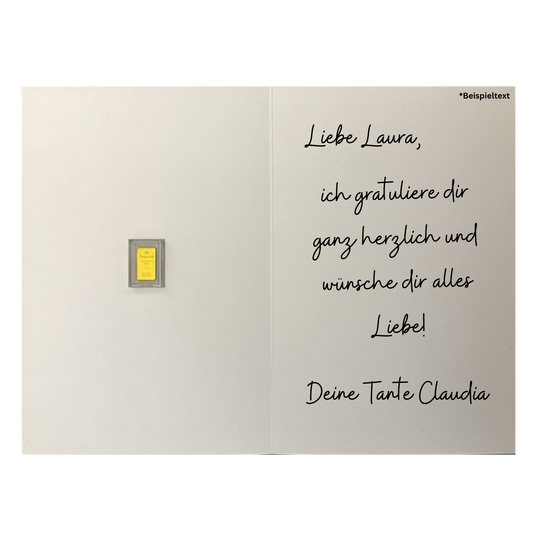 *Beispieltext
Liebe Laura,
ich gratuliere dir
ganz herzlich und
wünsche dir alles
Liebe!
Deine Tante Claudia